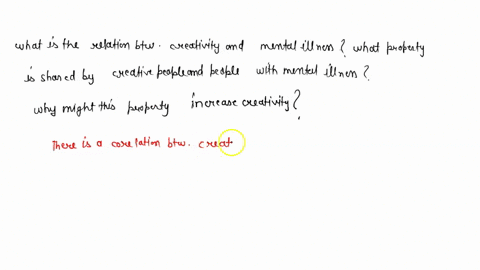 what is the relation btw. creativity and mental illness? what property
is shared by creative people and people with mental illness?
why might this property increase creativity?
There is a corelation btw. creat